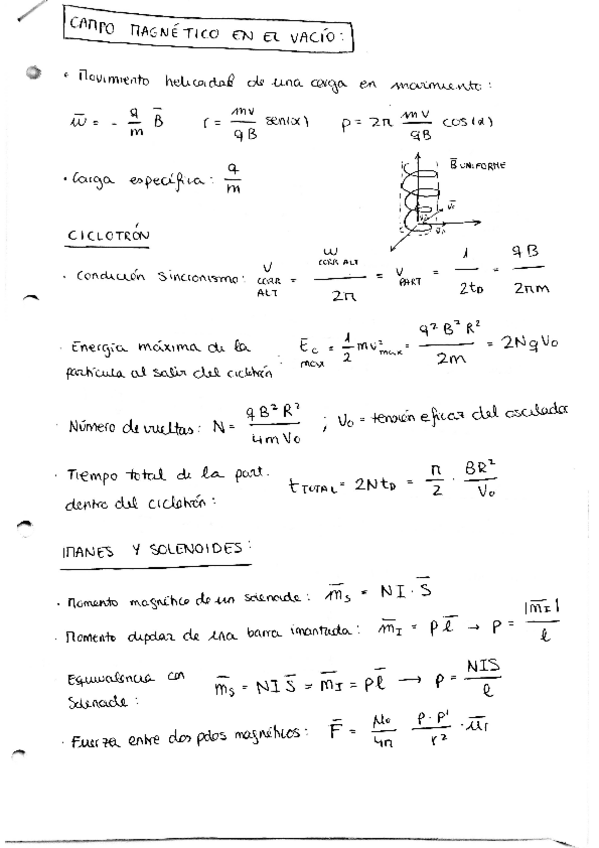 CAMPO MAGNÉTICO EN EL VACÍO:
· Movimiento helicoidal de una carga en movimiento:
w̄ = - q/m B̄   r = mv/qB sen(α)   p = 2π mv/qB cos(α)
B̄ UNIFORME
· Carga específica: q/m
CICLOTRÓN
· Condición Sincronismo: ν CORR ALT = w CORR ALT / 2π = ν PART = 1/2t_D = qB/2πm
· Energía máxima de la partícula al salir del ciclotrón : E_c máx = 1/2 mv²_max = q²B²R²/2m = 2NqV₀
· Número de vueltas: N = qB²R²/4mV₀ ; V₀ = tensión eficaz del oscilador
· Tiempo total de la part. dentro del ciclotrón: t_TOTAL = 2Nt_D = π/2 · BR²/V₀
IMANES Y SOLENOIDES:
· Momento magnético de un solenoide: m̄_s = NI · S̄
· Momento dipolar de una barra imantada: m̄_I = p l̄ → p = |m̄_I|/l
Equivalencia con Solenoide: m̄_s = NI S̄ = m̄_I = p l̄ → p = NIS/l
· Fuerza entre dos polos magnéticos: F̄ = μ₀/4π p·p'/r² · ū_r